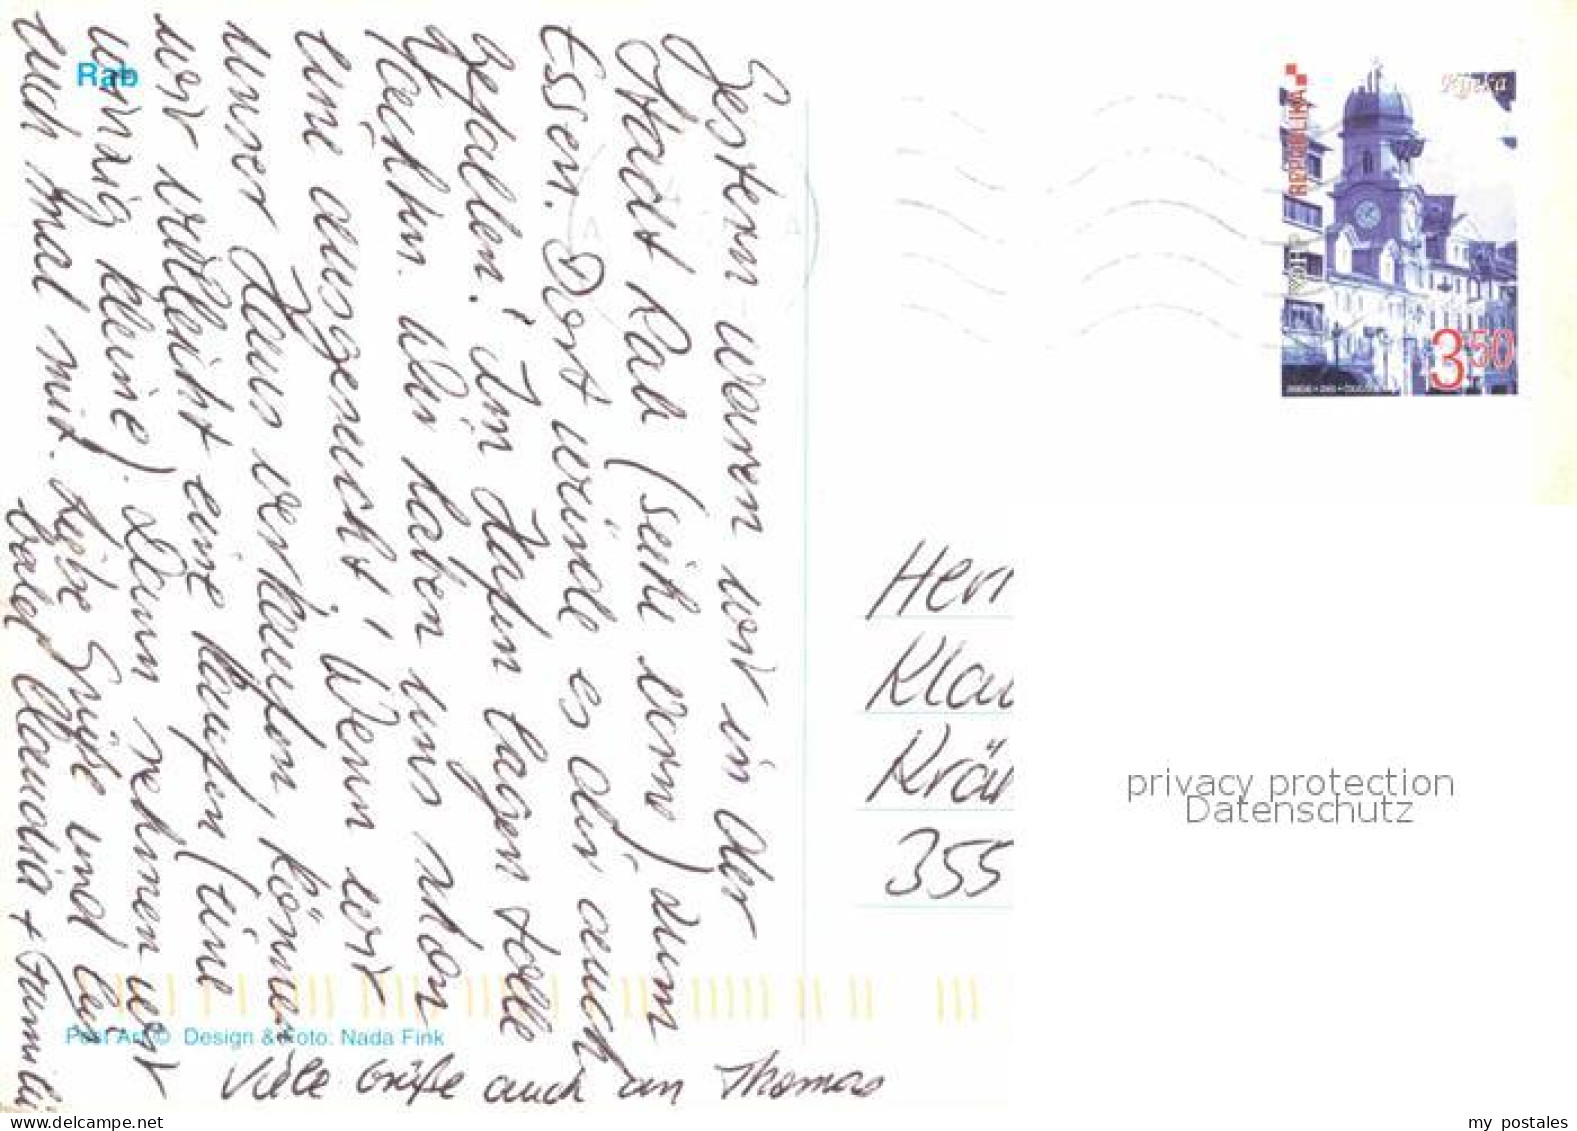 Rab
Gestern waren wir in der
Stadt Rab (siehe vorne) zum
Essen. Dort würde es dir auch
gefallen! Im Hafen lagen tolle
Yachten. Wir haben uns schon
eine ausgesucht! Wenn wir
unser Haus verkaufen, können
wir vielleicht eine kaufen (eine
winzig kleine). Dann nehmen wir
euch mal mit. Liebe Grüße und bis
bald Claudia + Familie
Viele Grüße auch an Thomas
Post Art © Design & Foto: Nada Fink
REPUBLIKA
HRVATSKA
Rijeka
3.50
Herr
Klau
Krä
355
privacy protection
Datenschutz
my postales
www.delcampe.net